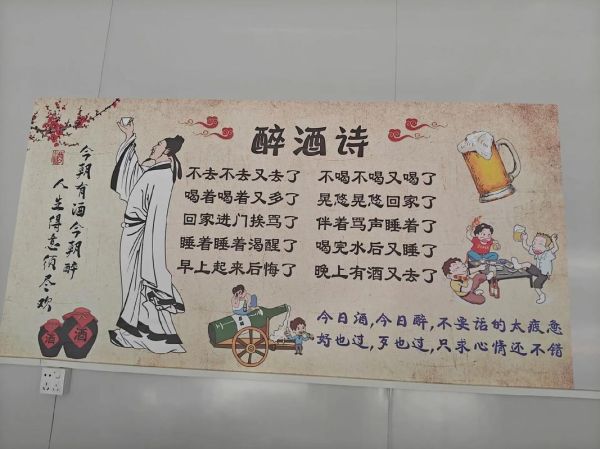 醉酒诗
不去不去又去了 不喝不喝又喝了
喝着喝着又多了 晃悠晃悠回家了
回家进门挨骂了 伴着骂声睡着了
睡着睡着渴醒了 喝完水后又睡了
早上起来后悔了 晚上有酒又去了
今日酒,今日醉,不要活的太疲惫
好也过,歹也过,只求心情还不错
今朝有酒今朝醉
人生得意须尽欢
酒
酒